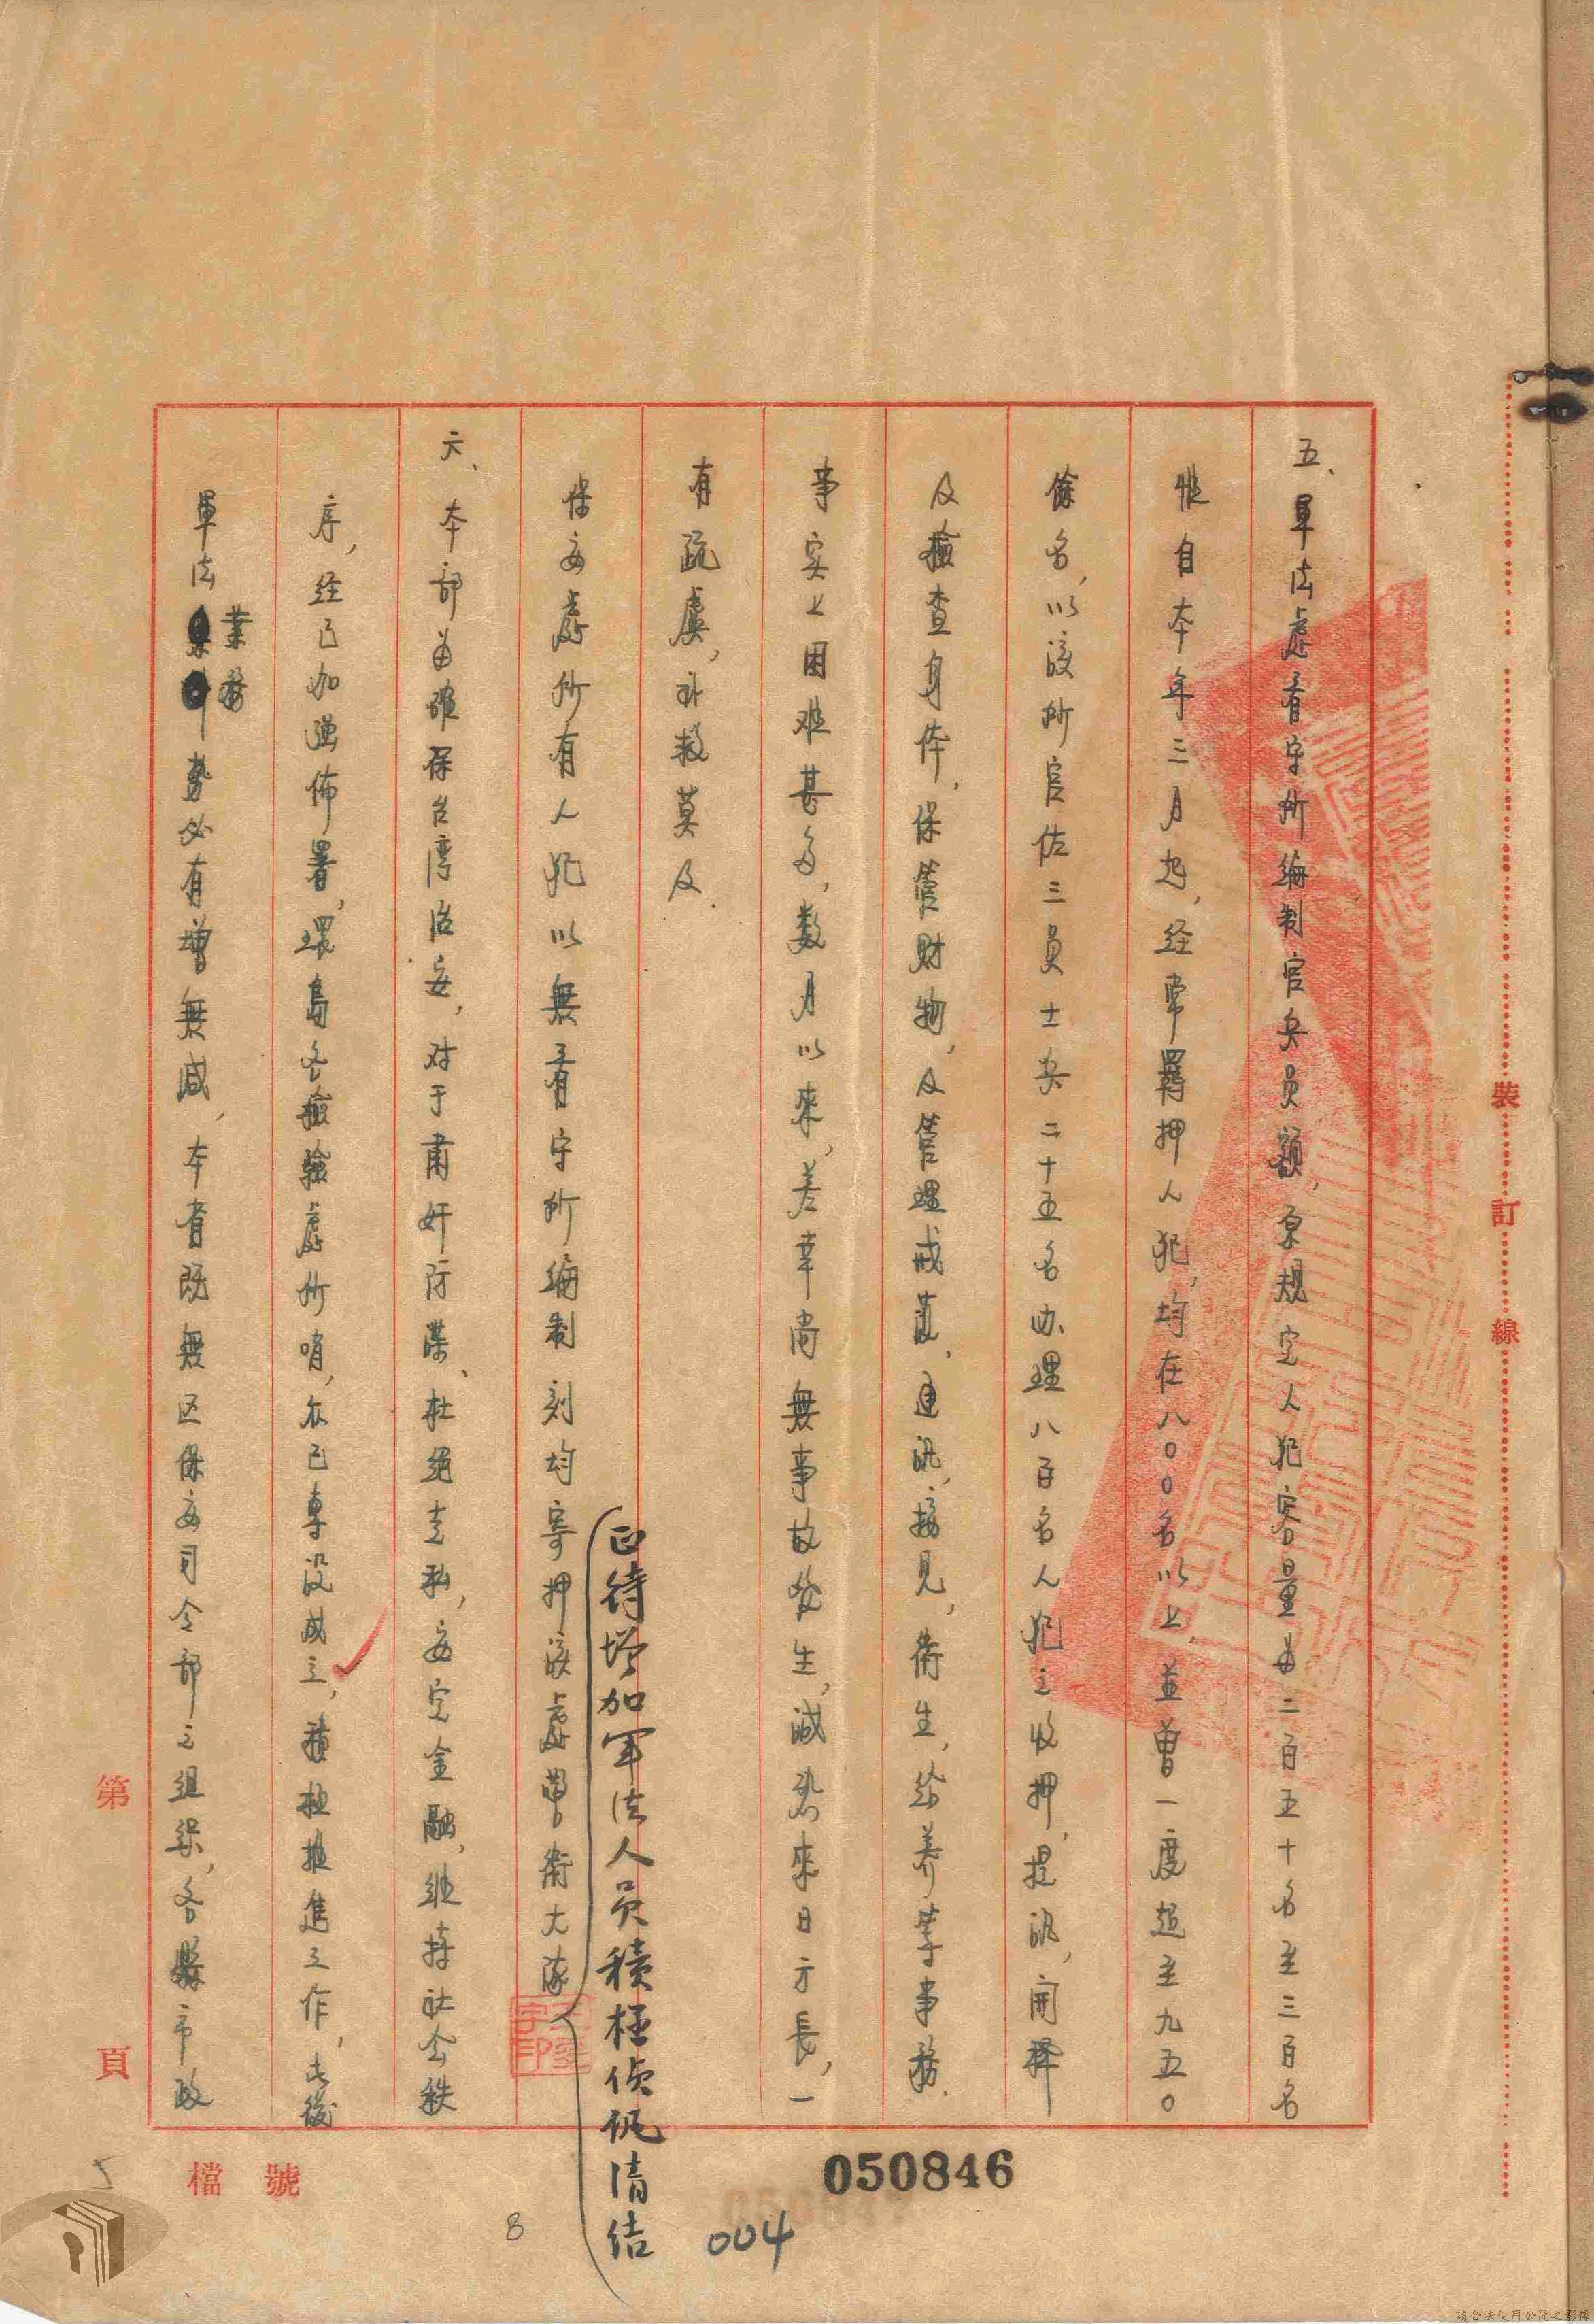 五、軍法處看守所編制官兵員額，原規定人犯容量为二百五十名至三百名
惟自本年三月起，经常羈押人犯，均在八〇〇名以上，並曾一度超至九五〇
餘名，以該所官佐三員士兵二十五名办理八百名人犯之收押，提訊，開釋
及檢查身体，保管財物，及管理戒護，通訊，接見，衛生，給养等事務．
事实上困难甚多，数月以來，差幸尚無事故發生，誠恐來日方長，一
有疏虞，补救莫及．
保安處所有人犯以無看守所編制刻均寄押該處警衛大隊
正待增加軍法人員積極侦訊清结
六、本部为確保台湾治安，对于肅奸防諜、杜絕走私，安定金融，維持社会秩
序，经已加强佈署，環島各檢驗處所哨，亦已專设成立，積極推進工作，此後
軍法業務勢必有增無减，本省既無区保安司令部之组织，各縣市政
裝訂線
第 頁
檔 號
050846
004
8
5
請合法使用公開之影像